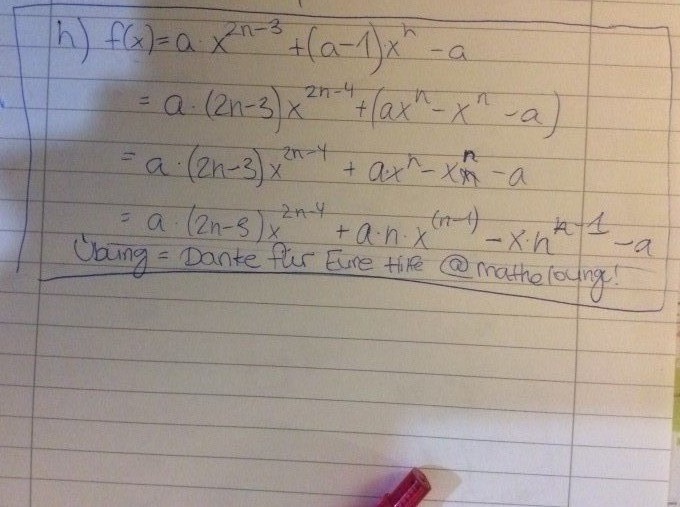 h) f(x)=a·x^{2n-3}+(a-1)·x^{n}-a
=a·(2n-3)x^{2n-4}+(ax^{n}-x^{n}-a)
=a·(2n-3)x^{2n-4}+a·x^{n}-x^{n}-a
=a·(2n-3)x^{2n-4}+a·n·x^{(n-1)}-x·n^{n-1}-a
Übung = Danke für Eure Hilfe @mathelounge!